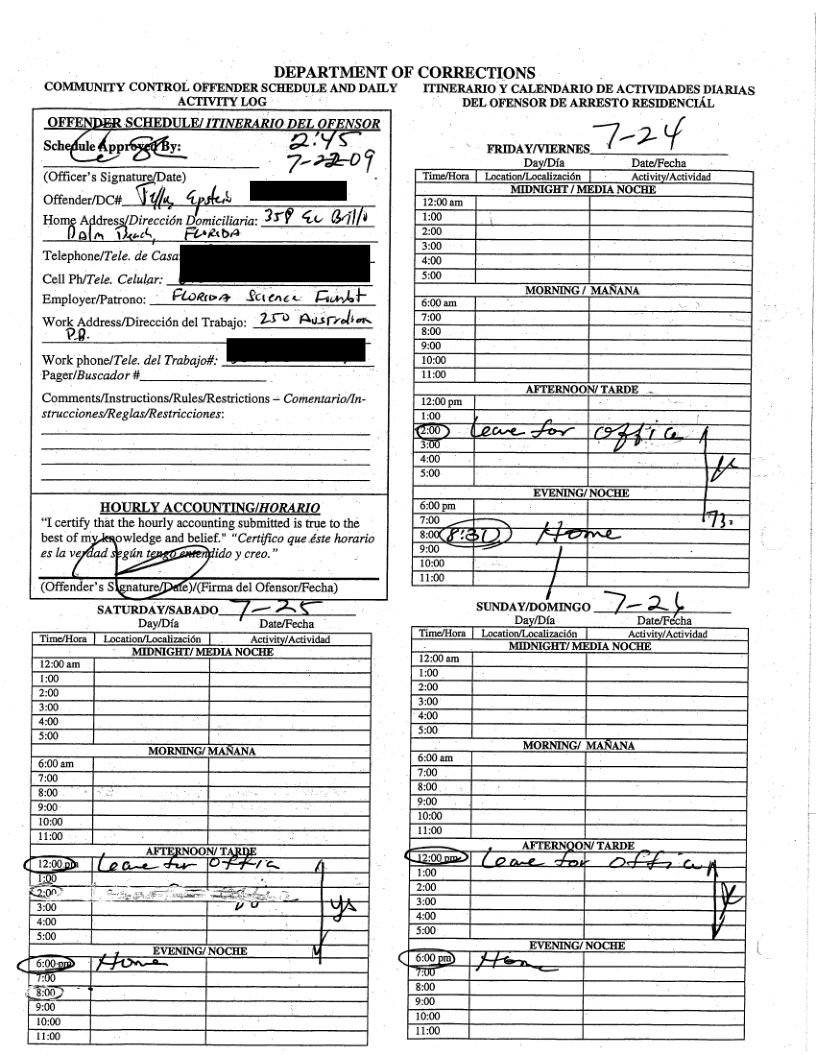 DEPARTMENT OF CORRECTIONS
COMMUNITY CONTROL OFFENDER SCHEDULE AND DAILY
ACTIVITY LOG
ITINERARIO Y CALENDARIO DE ACTIVIDADES DIARIAS
DEL OFENSOR DE ARRESTO RESIDENCIÁL
OFFENDER SCHEDULE/ ITINERARIO DEL OFENSOR
Schedule Approved By: 2:45
7-22-09
(Officer's Signature/Date)
Offender/DC# Jeffrey Epstein
Home Address/Dirección Domiciliaria: 358 El Brillo
Palm Beach, FLORIDA
Telephone/Tele. de Casa
Cell Ph/Tele. Celular:
Employer/Patrono: FLORIDA Science
Work Address/Dirección del Trabajo: 250 Australian
P.B.
Work phone/Tele. del Trabajo#:
Pager/Buscador #
Comments/Instructions/Rules/Restrictions – Comentario/In-
strucciones/Reglas/Restricciones:
HOURLY ACCOUNTING/HORARIO
"I certify that the hourly accounting submitted is true to the
best of my knowledge and belief." "Certifico que éste horario
es la verdad según tengo entendido y creo."
(Offender's Signature/Date)/(Firma del Ofensor/Fecha)
FRIDAY/VIERNES 7-24
Day/Día Date/Fecha
Time/Hora Location/Localización Activity/Actividad
MIDNIGHT / MEDIA NOCHE
12:00 am
1:00
2:00
3:00
4:00
5:00
MORNING / MAÑANA
6:00 am
7:00
8:00
9:00
10:00
11:00
AFTERNOON/ TARDE
12:00 pm
1:00
2:00 Leave for office
3:00
4:00
5:00
EVENING/ NOCHE
6:00 pm
7:00
8:00 8:30 Home
9:00
10:00
11:00
SATURDAY/SABADO 7-25
Day/Día Date/Fecha
Time/Hora Location/Localización Activity/Actividad
MIDNIGHT/ MEDIA NOCHE
12:00 am
1:00
2:00
3:00
4:00
5:00
MORNING/ MAÑANA
6:00 am
7:00
8:00
9:00
10:00
11:00
AFTERNOON/ TARDE
12:00 pm Leave for offic
1:00
2:00
3:00
4:00
5:00
EVENING/ NOCHE
6:00 pm Home
7:00
8:00
9:00
10:00
11:00
SUNDAY/DOMINGO 7-26
Day/Día Date/Fecha
Time/Hora Location/Localización Activity/Actividad
MIDNIGHT/ MEDIA NOCHE
12:00 am
1:00
2:00
3:00
4:00
5:00
MORNING/ MAÑANA
6:00 am
7:00
8:00
9:00
10:00
11:00
AFTERNOON/ TARDE
12:00 pm Leave for office
1:00
2:00
3:00
4:00
5:00
EVENING/ NOCHE
6:00 pm Home
7:00
8:00
9:00
10:00
11:00